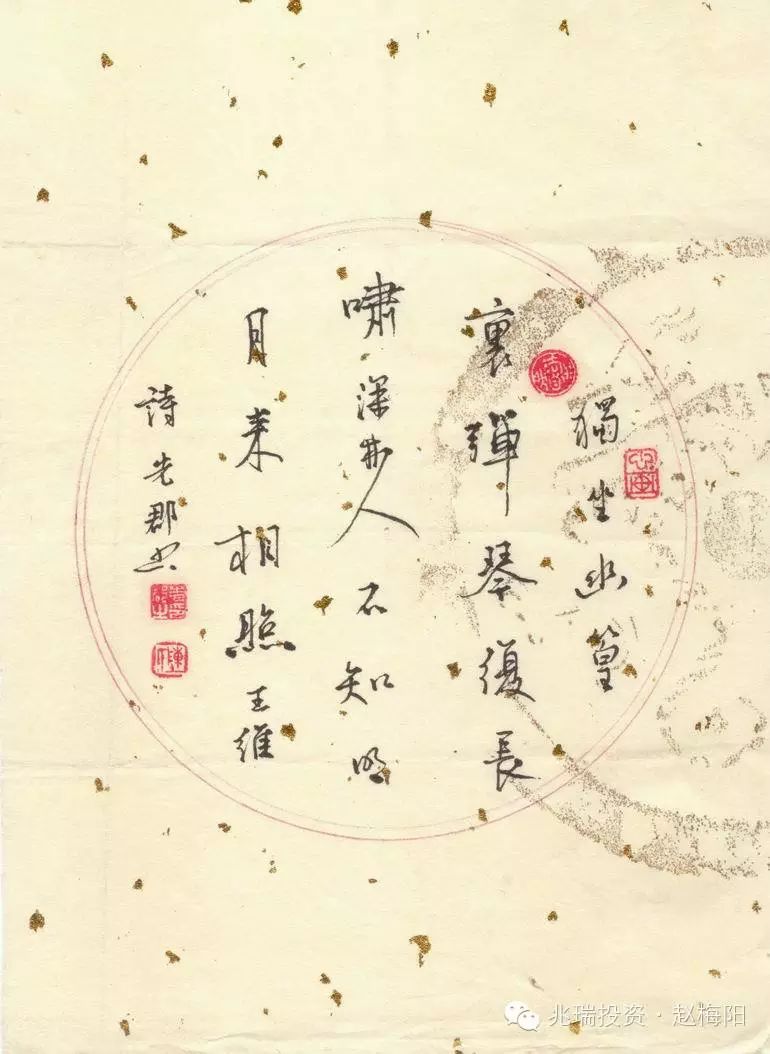 獨坐幽篁
裏彈琴復長
嘯深林人不知明
月来相照王維
詩先郡书
兆瑞投资·赵梅阳